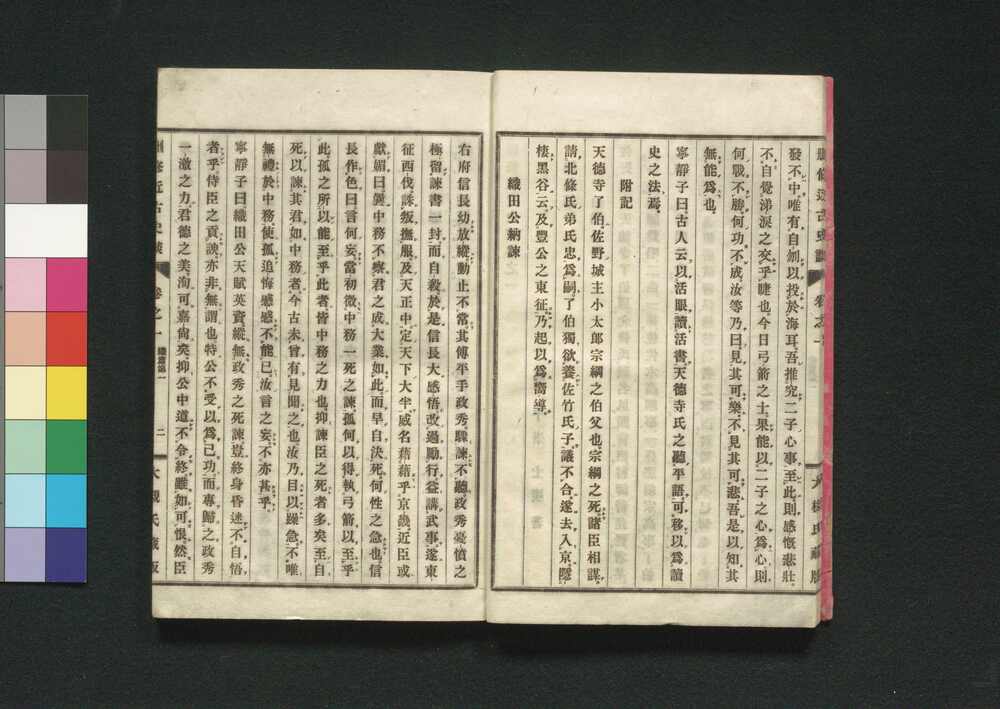 發不中唯有自刎以投於海耳吾推究二子心事至此則感慨悲壯
不自覺涕淚之交乎睫也今日弓箭之士果能以二子之心爲心則
何戰不勝何功不成汝等乃曰見其可樂不見其可悲吾是以知其
無能爲也
寧靜子曰古人云以活眼讀活書天德寺氏之聽平語可移以爲讀
史之法焉
附記
天德寺了伯佐野城主小太郎宗綱之伯父也宗綱之死諸臣相謀
請北條氏弟氏忠爲嗣了伯獨欲養佐竹氏子議不合遂去入京隱
棲黑谷云及豐公之東征乃起以爲嚮導
織田公納諫
右府信長幼放縱動止不常其傅平手政秀驟諫不聽政秀憂憤之
極留諫書一封而自殺於是信長大感悟改過勵行益講武事遂東
征西伐誅叛撫服及天正中定天下大半威名藉藉乎京畿近臣或
獻媚曰曩中務不察君之成大業如此而早自決死何性之急也信
長作色曰言何妄當初微中務一死之諫孤何以得執弓箭以至乎
此孤之所以能至乎此者皆中務之力也抑諫臣之死者多矣至自
死以諫其君如中務者今古未曾有見聞之也汝乃目以躁急不唯
無禮於中務使孤追悔感感不能已汝言之妄不亦甚乎
寧靜子曰織田公天賦英資縱無政秀之死諫豈終身昏迷不自悟
者乎侍臣之貢諛亦非無謂也特公不受以爲己功而專歸之政秀
一激之力君德之美洵可嘉尚矣抑公中道不令終雖如可恨然臣
近古史談 卷之一 織篇第一 二 大槻氏藏版